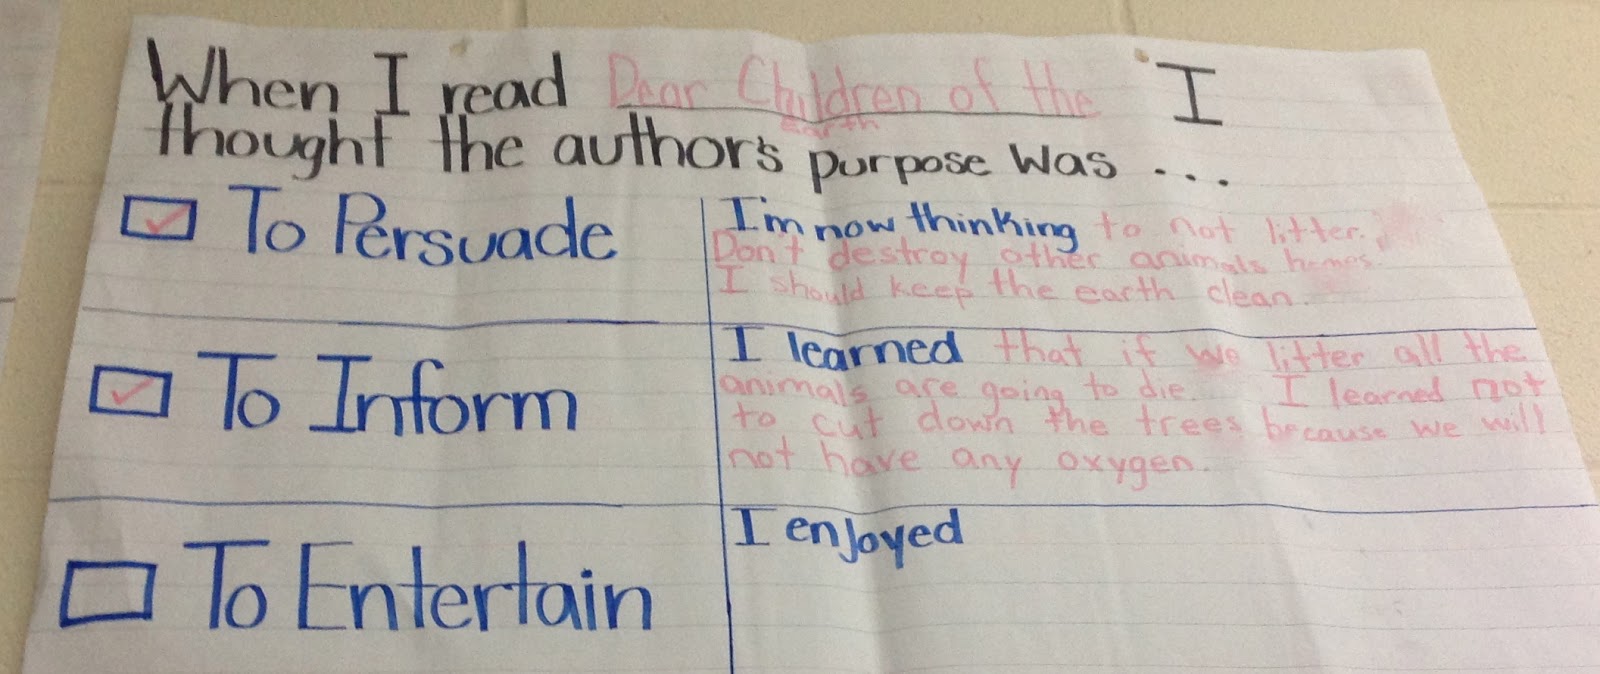 When I read Dear Children of the I
Earth
thought the author's purpose was ...
To Persuade
I'm now thinking to not litter.
Don't destroy other animals homes.
I should keep the earth clean.
To Inform
I learned that if we litter all the
animals are going to die. I learned not
to cut down the trees because we will
not have any oxygen.
To Entertain
I enjoyed